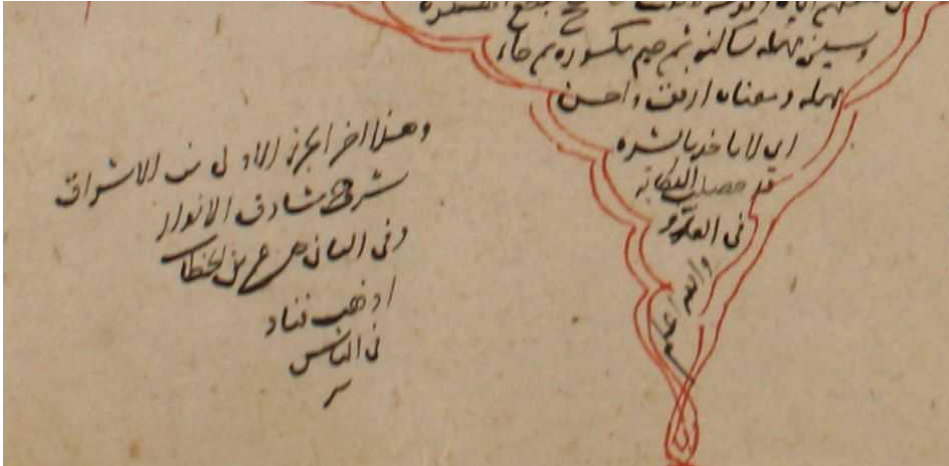 وسين مهملة ساكنة ثم جيم مكسورة ثم حاء
مهملة ومعناه ارفق واحسن
اى لا تاخذ بالشدة
قد حصلت النكاية
فى العدو
والله اعلم
وهذا اخر الجزء الاول من الاشراق
شرح مشارق الانوار
وفى الثانى عن عمر بن الخطاب
اذهب فناد
فى الناس